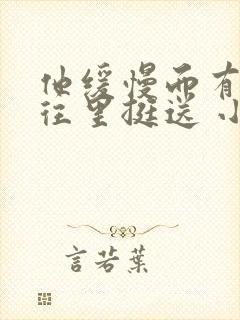 他缓慢而有
往里挺送 小
言若葉